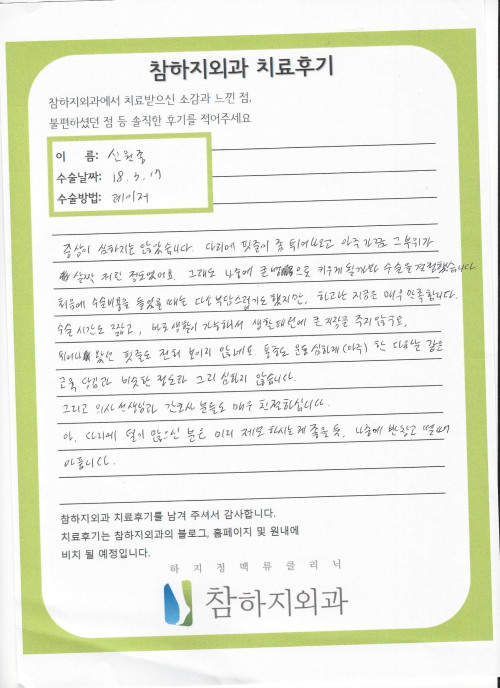 참하지외과 치료후기
참하지외과에서 치료받으신 소감과 느낀 점,
불편하셨던 점 등 솔직한 후기를 적어주세요
이 름: 신원중
수술날짜: 18. 5. 17
수술방법: 레이저
증상이 심하지는 않았습니다. 다리에 핏줄이 좀 튀어나오고 아주 가끔 그 부위가
살짝 저린 정도였어요. 그래도 나중에 큰 병으로 키우게 될까봐 수술을 결정했습니다
처음에 수술비용을 들었을 때는 다소 부담스럽기도 했지만, 하고난 지금은 매우 만족합니다.
수술 시간도 짧고, 바로 생활이 가능해서 생활패턴에 큰 지장을 주지않구요,
튀어나왔던 핏줄도 전혀 보이지 않네요. 통증도 운동 심하게 (아주) 한 다음날 같은
근육 당김과 비슷한 정도라 그리 심하지 않습니다.
그리고 의사 선생님과 간호사 분들도 매우 친절하십니다.
아. 다리에 털이 많으신 분은 미리 제모하시는게 좋을 듯. 나중에 반창고 뗄 때
아픕니다.
참하지외과 치료후기를 남겨 주셔서 감사합니다.
치료후기는 참하지외과의 블로그, 홈페이지 및 원내에
비치 될 예정입니다.
하지정맥류클리닉
참하지외과